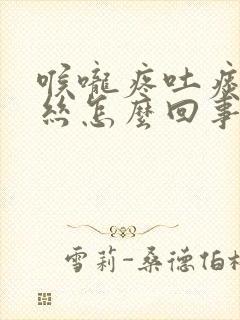 喉嚨疼吐痰
絲怎麼回事
雪莉-桑德伯格